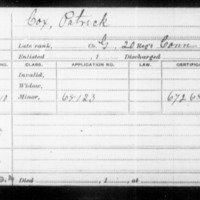 Cox, Patrick
Late rank, Co. G, 20 Reg't Conn
Enlisted , 1 Discharged
CLASS. APPLICATION NO. LAW. CERTIFI
Invalid,
Widow,
Minor, 68123
Died , 1 , at